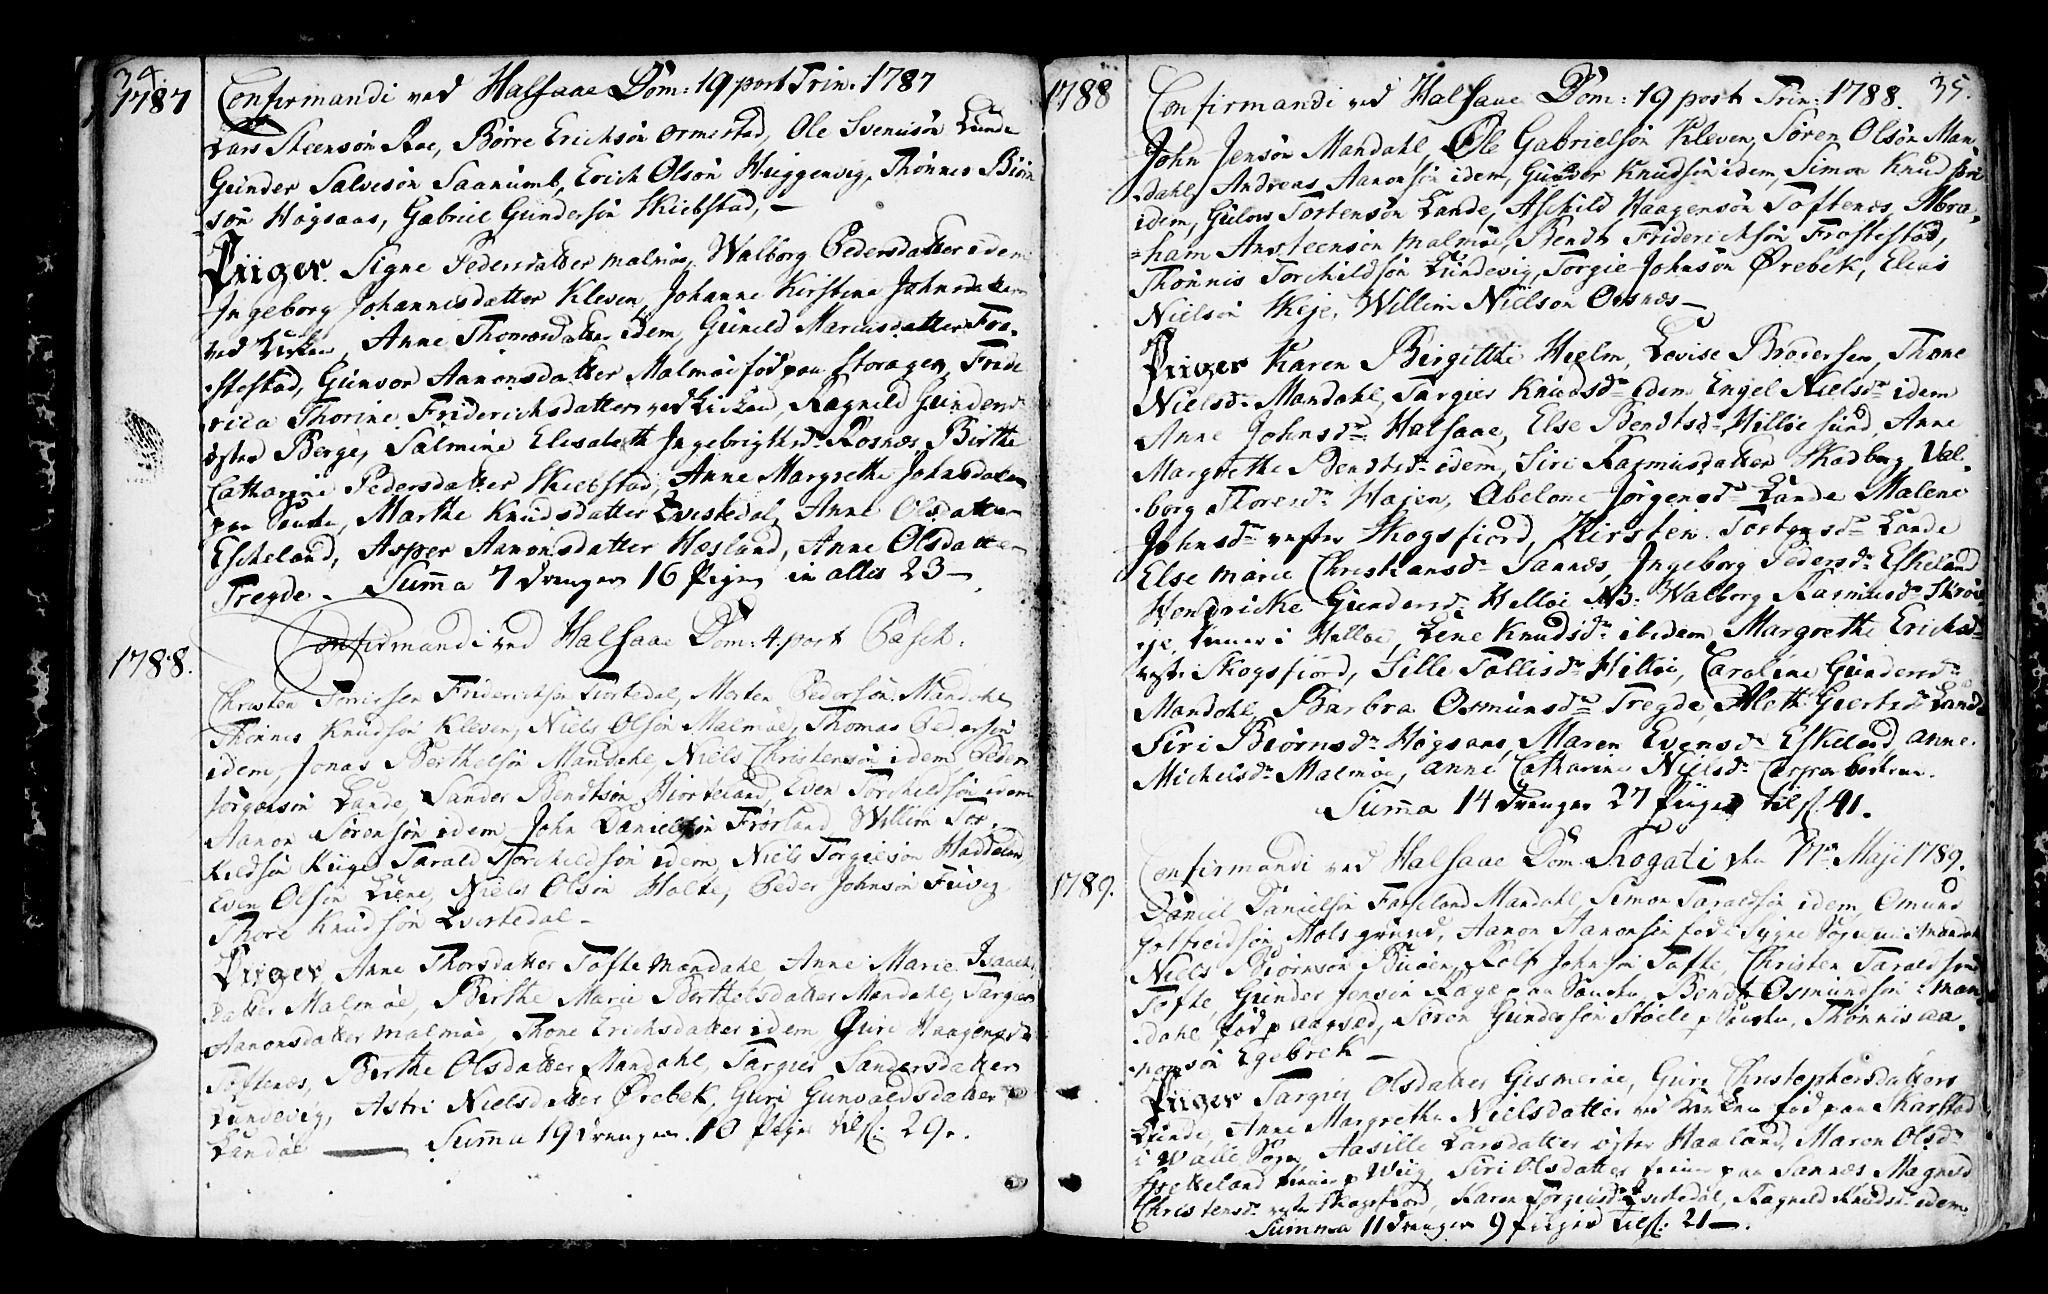 34.
1787
Confirmandi ved Halsaae Dom: 19 post Trin: 1787
Lars Steensøn Roe, Børre Ericksøn Ormestad, Ole Svenusøn Lunde
Gunder Salvesøn Saanumb, Erich Olsøn Huggenvig, Thønnes Biørn
søn Høgsaas, Gabriel Gundersøn Skiebstad, —
Piiger. Signe Pedersdatter Malmøe, Walborg Pedersdatter idem
Ingeborg Johannesdatter Kleven, Johanne Kirstine Johnsdatter
ved Kirken, Anne Thomasdatter idem, Gunild Mariusdatter Fro-
stestad, Gunvor Aanonsdatter Malmøe fød paa Storagen, Fride
rica Thorine Friderichsdatter ved Kirken, Ragnild Gundersd:
øster Berge, Salmine Elisabeth Ingebrigtsd: Rosnæs, Birthe
Catharine Pedersdatter Skiebstad, Anne Margrethe Johnsdatter
paa , Marthe Knudsdatter Qvistedal, Anne Olsdatter
Eskeland, Asper Aanonsdatter Hæsland, Anne Olsdatter
Tregde. Summa 7 drenge 16 Piger in alles 23 —
1788.
Confirmandi ved Halsaae Dom: 4. post Pasch:
Christen Friderichsen , Morten Pedersøn Mandahl
Thønnes Knudsøn Kleven, Niels Olsøn Malmøe, Thomas Pedersøn
idem, Jonas Berthelsøn Mandahl, Niels Christensøn idem, Peder
Jørgensøn Lande, Sander Bendtsøn Hiorteland, Even Torchildsøn idem
Aanon Sørensøn idem, John Danielsøn Frøsland, Willim Tor-
kildsøn Kiige, Tarald Torchildsøn idem, Niels Torgiesøn Haddeland
Even Olsøn Liene, Niels Olsøn Holte, Peder Johnsøn Fuvig
Thore Knudsøn Qvistedal —
Piiger Anne Thorsdatter Tofte Mandahl, Anne Marie Isaachs
datter Malmøe, Birthe Marie Berthelsdatter Mandahl, Targier
Aanonsdatter Malmøe, Thone Erichsdatter idem, Guri Haagensd:
Toftenæs, Berthe Olsdatter Mandahl, Targier Sandersdatter
Lundevig, Astri Nielsdatter Ørebek, Guri Gunvaldsdatter
Landøe — Summa 19 drenge. 10 Piger tils: 29.
35.
1788
Confirmandi ved Halsaae Dom: 19 post Trin: 1788.
John Jensøn Mandahl, Ole Gabrielsøn Kleven, Søren Olsøn Man-
dahl, Andreas Aanonsøn idem, Gunder Knudsøn idem, Simon Knudsøn
idem, Gulow Tortensøn Lande, Aschild Haagensøn Toftenæs, Abra-
ham Ansteensøn Malmøe, Bendt Fridericksøn Frostestad,
Thønnis Torchildsøn Lundevig, Torgie Johnsøn Ørebek, Elias
Nielsøn Skeje, Willim Nielsøn Oresnæs —
Piiger Karen Birgitthe Hielm, Lovise Brodersen, Thone
Nielsd: Mandahl, Targier Knudsd: idem, Engel Nielsd: idem
Anne Johnsd: Halsaae, Else Bendtsd: Hilløesund, Anne
Margrethe Bendtsd: idem, Siri Rasmusdatter Skadberg, Val-
borg Thoresd: Hajen, Abelone Jørgensd: Lande, Malene
Johnsd: vester Skogsfiord, Kirsten Torbensd: Lande
Else Marie Christiansd: Sannæs, Ingeborg Pedersd: Eskeland
Hendricke Gundersd: Hilløe NB: Walborg Rasmusd: Skrøv
je, tiener i Hilløe, Lene Knudsd: ibidem, Margrethe Erichsd:
vest: Skogsfiord, Sille Tollisd: Hilløe, Caroline Gundersd:
Mandahl, Barbra Osmundsd: Tregde, Aleth Giertsd: Lande
Siri Biørnsd: Høgsaas, Maren Evensd: Eskeland, Anne
Michelsd: Malmøe, Anne Catharine Nielsd: .
Summa 14 drenge 27 Piiger tils: 41.
1789.
Confirmandi ved Halsaae Dom: Rogati den 17de Maji 1789.
Daniel Danielsøn Faseland Mandahl, Simon Taraldsøn idem, Omund
Gotfredsøn Molsgrund, Aanon Aanonsøn fød i Sygne Sogn nu i Mandahl
Niels Biørnsøn Buøen, Rolf Johnsøn Tofte, Christen Taraldsøn
Tofte, Gunder Jonsøn Rage paa , Bendt Osmundsøn i Man-
dahl fød p Aagsæd, Søren Gundersøn Støele p , Thønnis Aa-
nonsøn Egebrek —
Piiger Targier Olsdatter Gismerøe, Guri Christophersdatter
Lunde, Anne Margrethe Nielsdatter ved Kirken fød paa Skarstad
i Walle Sogn, Aasille Larsdatter øster Haaland, Maren Olsd:
Frækeland tiener p Wiig, Siri Olsdatter tiener paa Sannæs, Magnild
Christensd: vester Skogsfiord, Karen Torgiusd: Qvistedal, Ragnild Knudsd: idem.
Summa 11 drenge 9 piiger tils: 21 —.